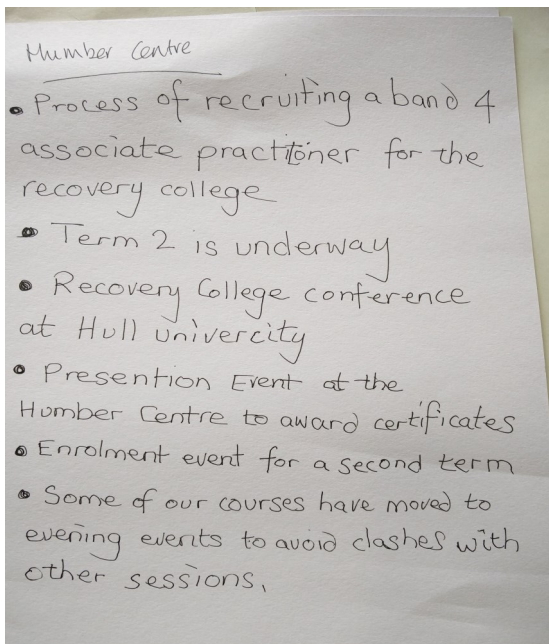 Humber Centre
• Process of recruiting a band 4
associate practitioner for the
recovery college
• Term 2 is underway
• Recovery College conference
at Hull univercity
• Presention Event at the
Humber Centre to award certificates
• Enrolment event for a second term
• Some of our courses have moved to
evening events to avoid clashes with
other sessions.